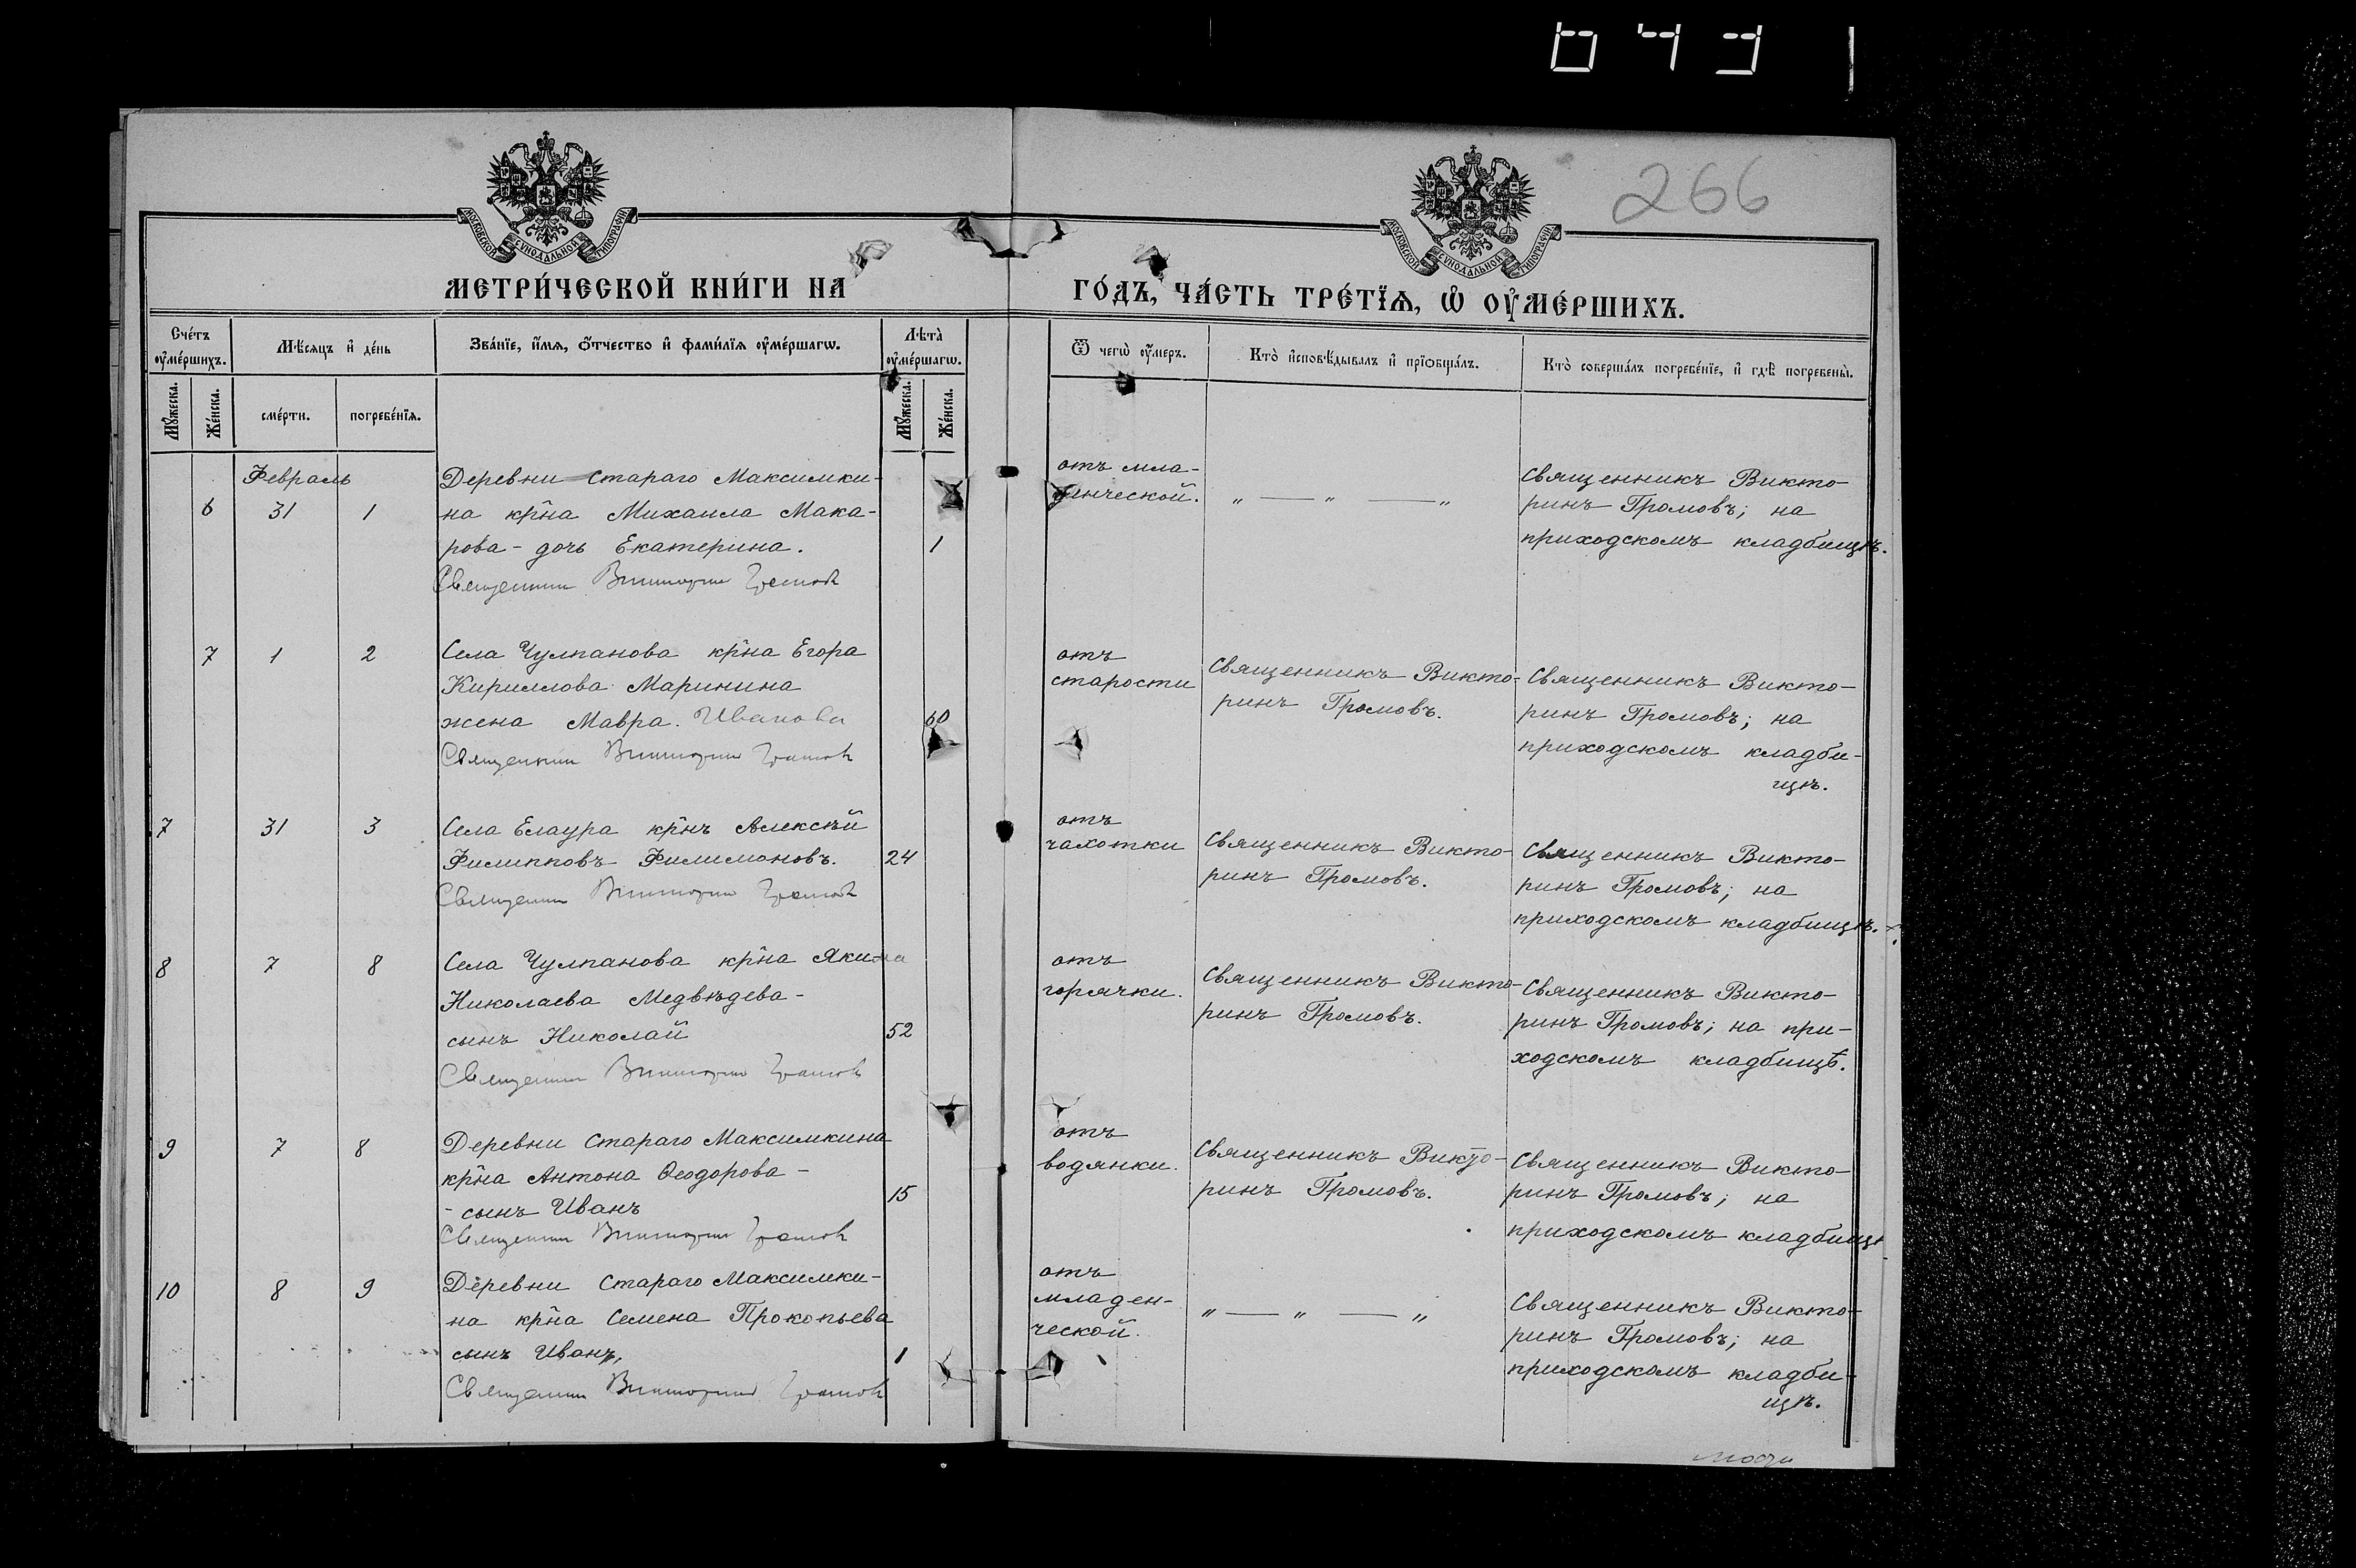 266
МОСКОВСКОЙ СѴНОДАЛЬНОЙ ТИПОГРАФІИ
МОСКОВСКОЙ СѴНОДАЛЬНОЙ ТИПОГРАФІИ
МЕТРИ́ЧЕСКОЙ КНИ́ГИ НА
ГО́ДЪ, ЧА́СТЬ ТРЕ́ТЇѦ, Ѡ҆ ОУ҆МЕ́РШИХЪ.
Сче́тъ оу҆ме́ршихъ.
Мѣ́сяцъ и҆ де́нь
Зва́нїе, и҆́мѧ, ѻ҆́тчество и҆ фами́лїѧ оу҆ме́ршагѡ.
Лѣ́та оу҆ме́ршагѡ.
Ѿ чегѡ̀ оу҆́меръ.
Кто̀ и҆сповѣ́дывалъ и҆ прїѻбща́лъ.
Кто̀ соверша́лъ погребе́нїе, и҆ гдѣ̀ погребены̀.
Мꙋ́жеска.
Же́нска.
сме́рти.
погребе́нїѧ.
Мꙋ́жеска.
Же́нска.
Февраль
6 31 1
Деревни Стараго Максимки-
на кр̃на Михаила Мака-
рова - дочь Екатерина.
1
Священник Викторин Громов
отъ мла-
денческой.
„ — „ — „
Священникъ Викто-
ринъ Громовъ; на
приходскомъ кладбищѣ.
7 1 2
Села Чулпанова кр̃на Егора
Кириллова Маринина
жена Мавра. Иванова
60
Священник Викторин Громов
отъ
старости
Священникъ Викто-
ринъ Громовъ.
Священникъ Викто-
ринъ Громовъ; на
приходскомъ кладби-
щѣ.
7 31 3
Села Елаура кр̃нъ Алексѣй
Филипповъ Филимоновъ.
24
Священник Викторин Громов
отъ
чахотки
Священникъ Викто-
ринъ Громовъ.
Священникъ Викто-
ринъ Громовъ; на
приходскомъ кладбищѣ.
8 7 8
Села Чулпанова кр̃на Якима
Николаева Медвѣдева -
сынъ Николай
52
Священник Викторин Громов
отъ
горячки.
Священникъ Викто-
ринъ Громовъ.
Священникъ Викто-
ринъ Громовъ; на при-
ходскомъ кладбищѣ.
9 7 8
Деревни Стараго Максимкина
кр̃на Антона Ѳеодорова -
- сынъ Иванъ
15
Священник Викторин Громов
отъ
водянки.
Священникъ Викто-
ринъ Громовъ.
Священникъ Викто-
ринъ Громовъ; на
приходскомъ кладбищѣ
10 8 9
Деревни Стараго Максимки-
на кр̃на Семена Прокопьева
сынъ Иванъ,
1
Священник Викторин Громов
отъ
младен-
ческой.
„ — „ — „
Священникъ Викто-
ринъ Громовъ; на
приходскомъ кладби-
щѣ.